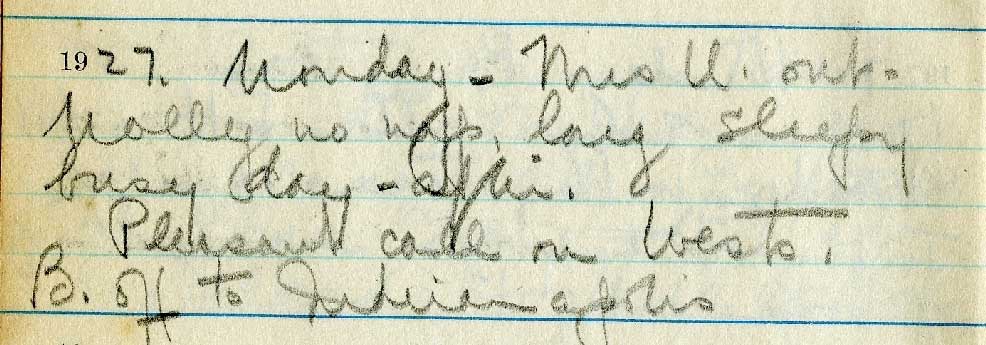 1927. Monday - Mrs U. out.
Molly no nap, long sleepy
busy day -
Pleasant call on Wests.
B. off to Indianapolis